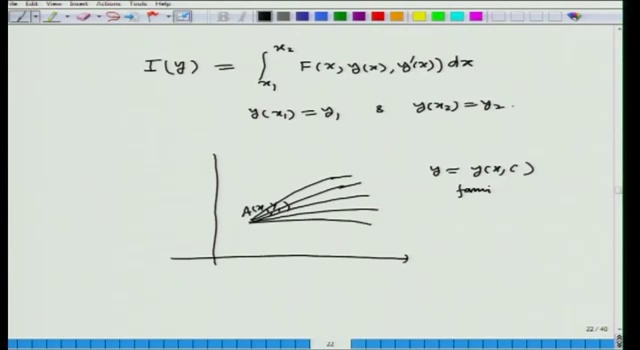 File Edit View Insert Actions Tools Help
I(y) = ∫_{x₁}^{x₂} F(x, y(x), y'(x)) dx
y(x₁) = y₁ & y(x₂) = y₂.
y = y(x, c)
fami
A(x₁, y₁)
22 / 40
22